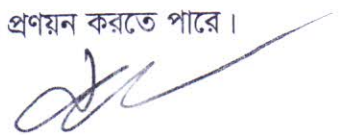 প্রণয়ন করতে পারে।